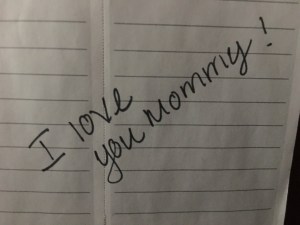 I love
you mommy!